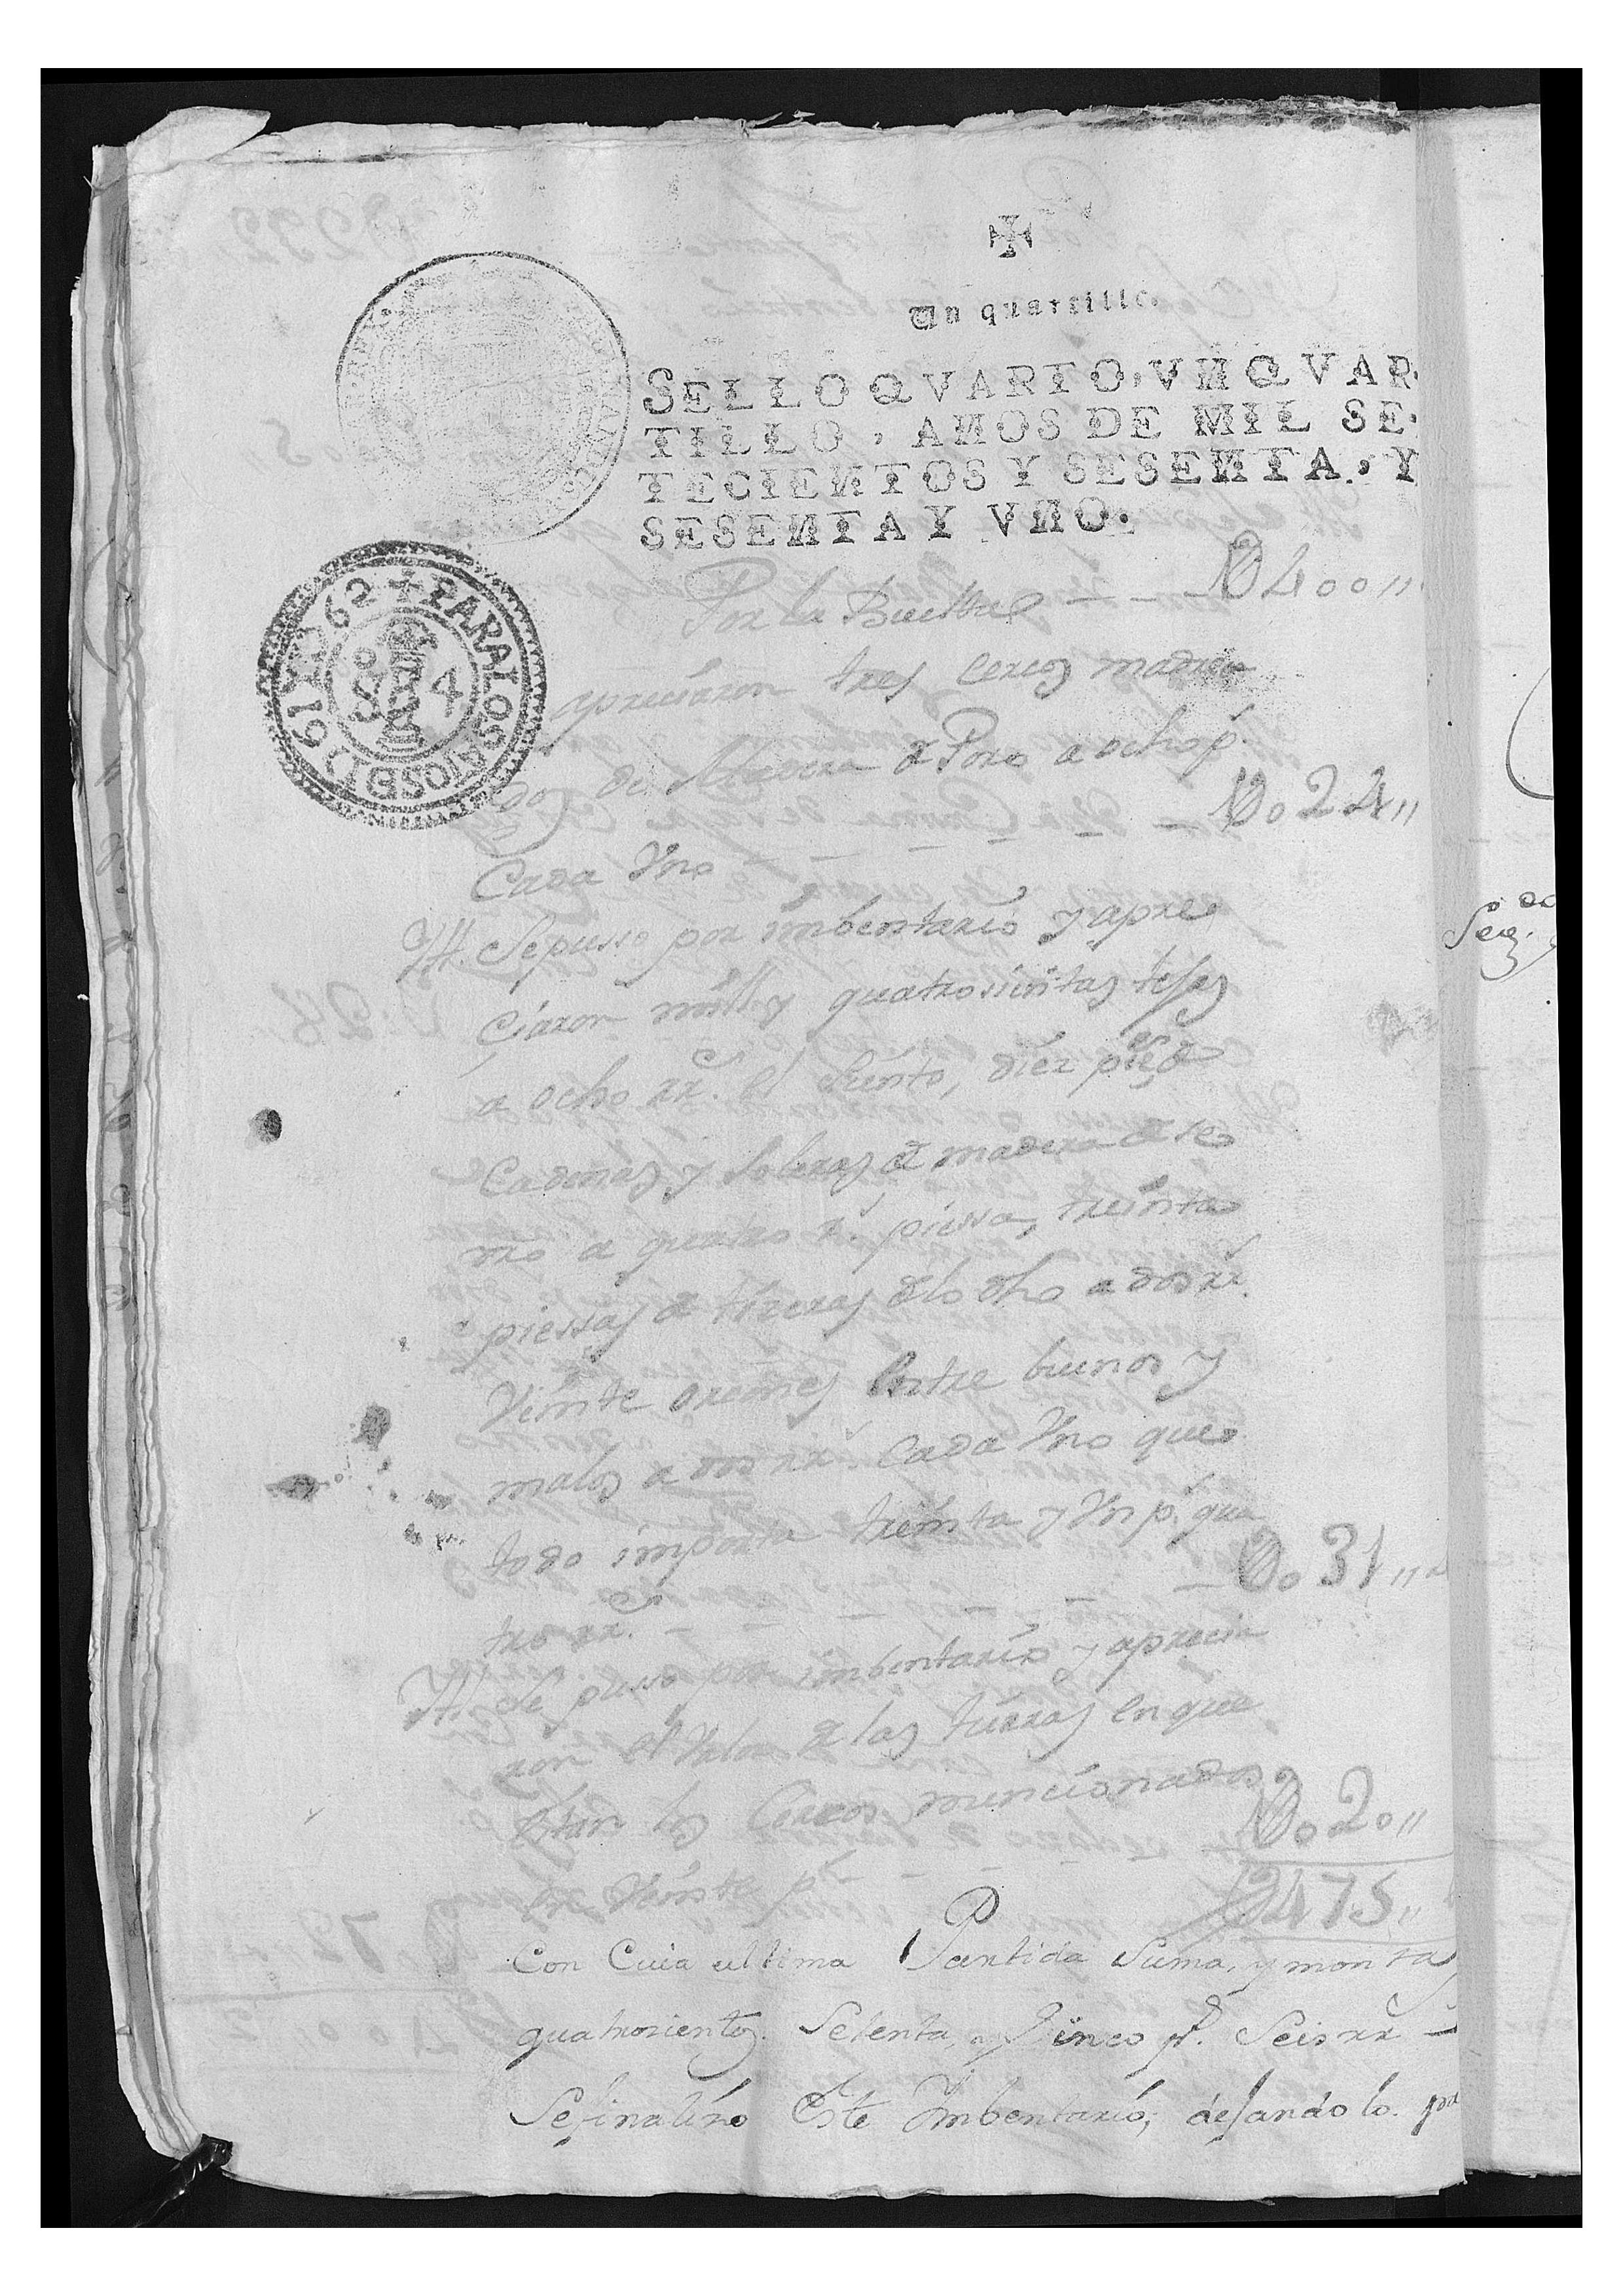 Un quartillo.
SELLO QVARTO, VN QVAR-
TILLO, AÑOS DE MIL SE-
TECIENTOS Y SESENTA, Y
SESENTA Y VNO.
PARA LOS AÑOS DE 1761 Y 1762
Por la Buelta — — — U400"
apreciaron tres cercos
de Madera de Poro a ocho p.s
Cada Vno — — — — — U024"
Yt. Se pusso por imbentario y apre
ciaron mill y quatrosientas tejas
a ocho rr.s el siento, diez pie.s de
Cadenas y soleras de madera de Ro
mo a quatro r.s piessa, treinta
piessas de tixeras de lo dho a dos rr.
Veinte orcones Entre buenos y
malos a dos rr.s Cada Vno que
todo importa treinta y Vn p.s qua
tro rr.s — — — — — U031"
Yt. Se pusso por imbentario y aprecia
ron el Valor de las tierras en que
están los Cercos mencionados
en Veinte p.s — — — U020"
U475"
Con Cuia ultima Partida Suma, y monta
quatrosientos Setenta y Sinco p.s Seis rr —
Se finalizo Este Imbentario, dejandolo pa